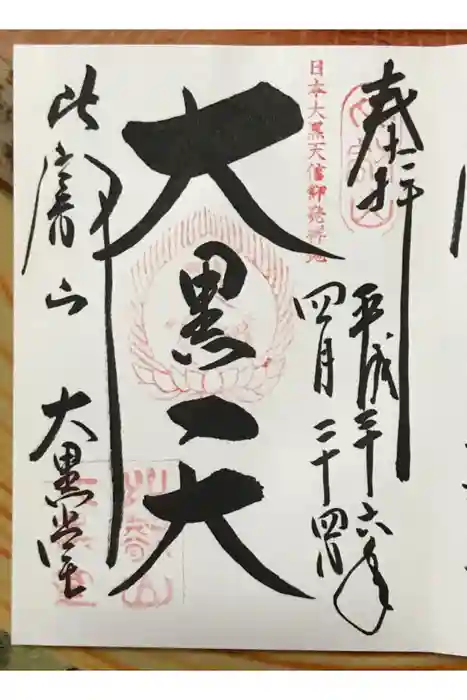 奉拝
平成二十六年
四月二十四日
日本大黒天信仰発祥地
大黒天
比叡山
大黒堂
比叡山
大黒堂